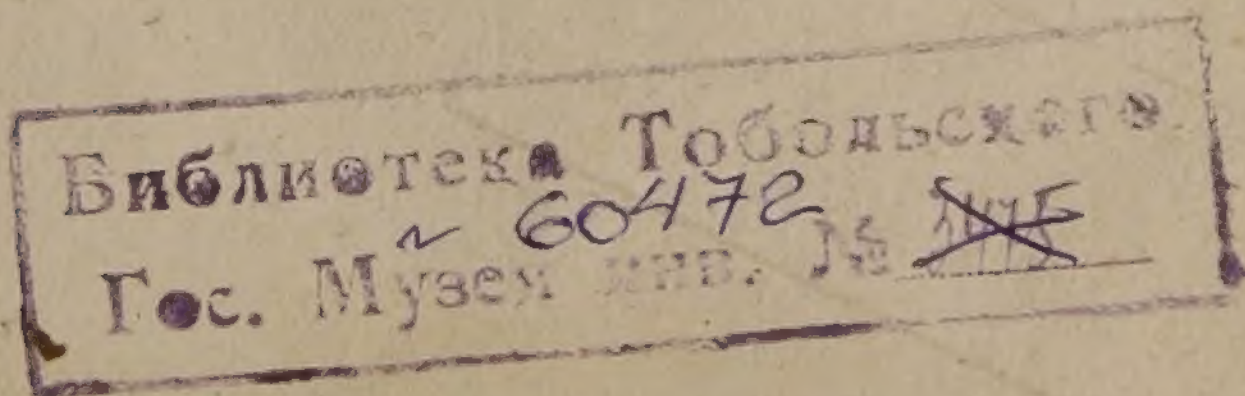 Библиотека Тобольского
~ 60472
Гос. Музея инв. №